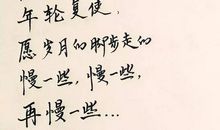 年轮复使,
愿岁月的脚步走的
慢一些,慢一些,
再慢一些...